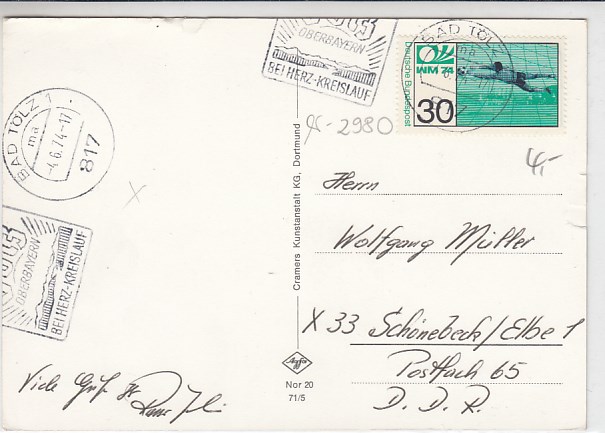 OBERBAYERN
BEI HERZ-KREISLAUF
BAD TÖLZ
ma
817
WM 74
Deutsche Bundespost
30
BAD TÖLZ 1
ma
-4.6.74-17
817
OBERBAYERN
BEI HERZ-KREISLAUF
-2980
4,-
Cramers Kunstanstalt KG, Dortmund
Herrn
Wolfgang Müller
X 33 Schönebeck/Elbe 1
Postfach 65
D. D. R.
Viele
Agfa
Nor 20
71/5